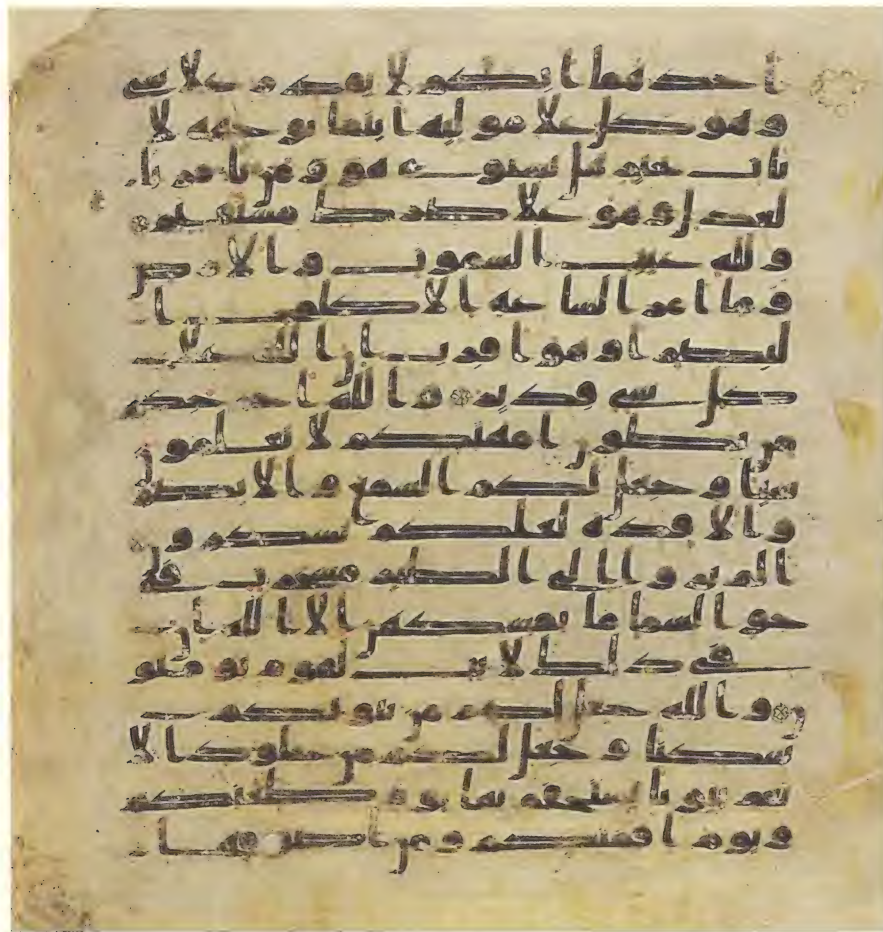 احدهما ابكم لا يقدر على شي
وهو كل على موليه اينما يوجهه لا
يات بخير هل يستوي هو ومن يامر با
لعدل وهو على صرط مستقيم
ولله غيب السموت والارض
وما امر الساعه الا كلمح ا
لبصر او هو اقرب ان الله على
كل شي قدير والله اخرجكم
من بطون امهتكم لا تعلمون
شيا وجعل لكم السمع والابصر
والافده لعلكم تشكرون
الم يروا الى الطير مسخرت في
جو السما ما يمسكهن الا الله ان
في ذلك لايت لقوم يومنو
ن والله جعل لكم من بيوتكم
سكنا وجعل لكم من جلود الا
نعم بيوتا تستخفونها يوم ظعنكم
ويوم اقمتكم ومن اصوفها